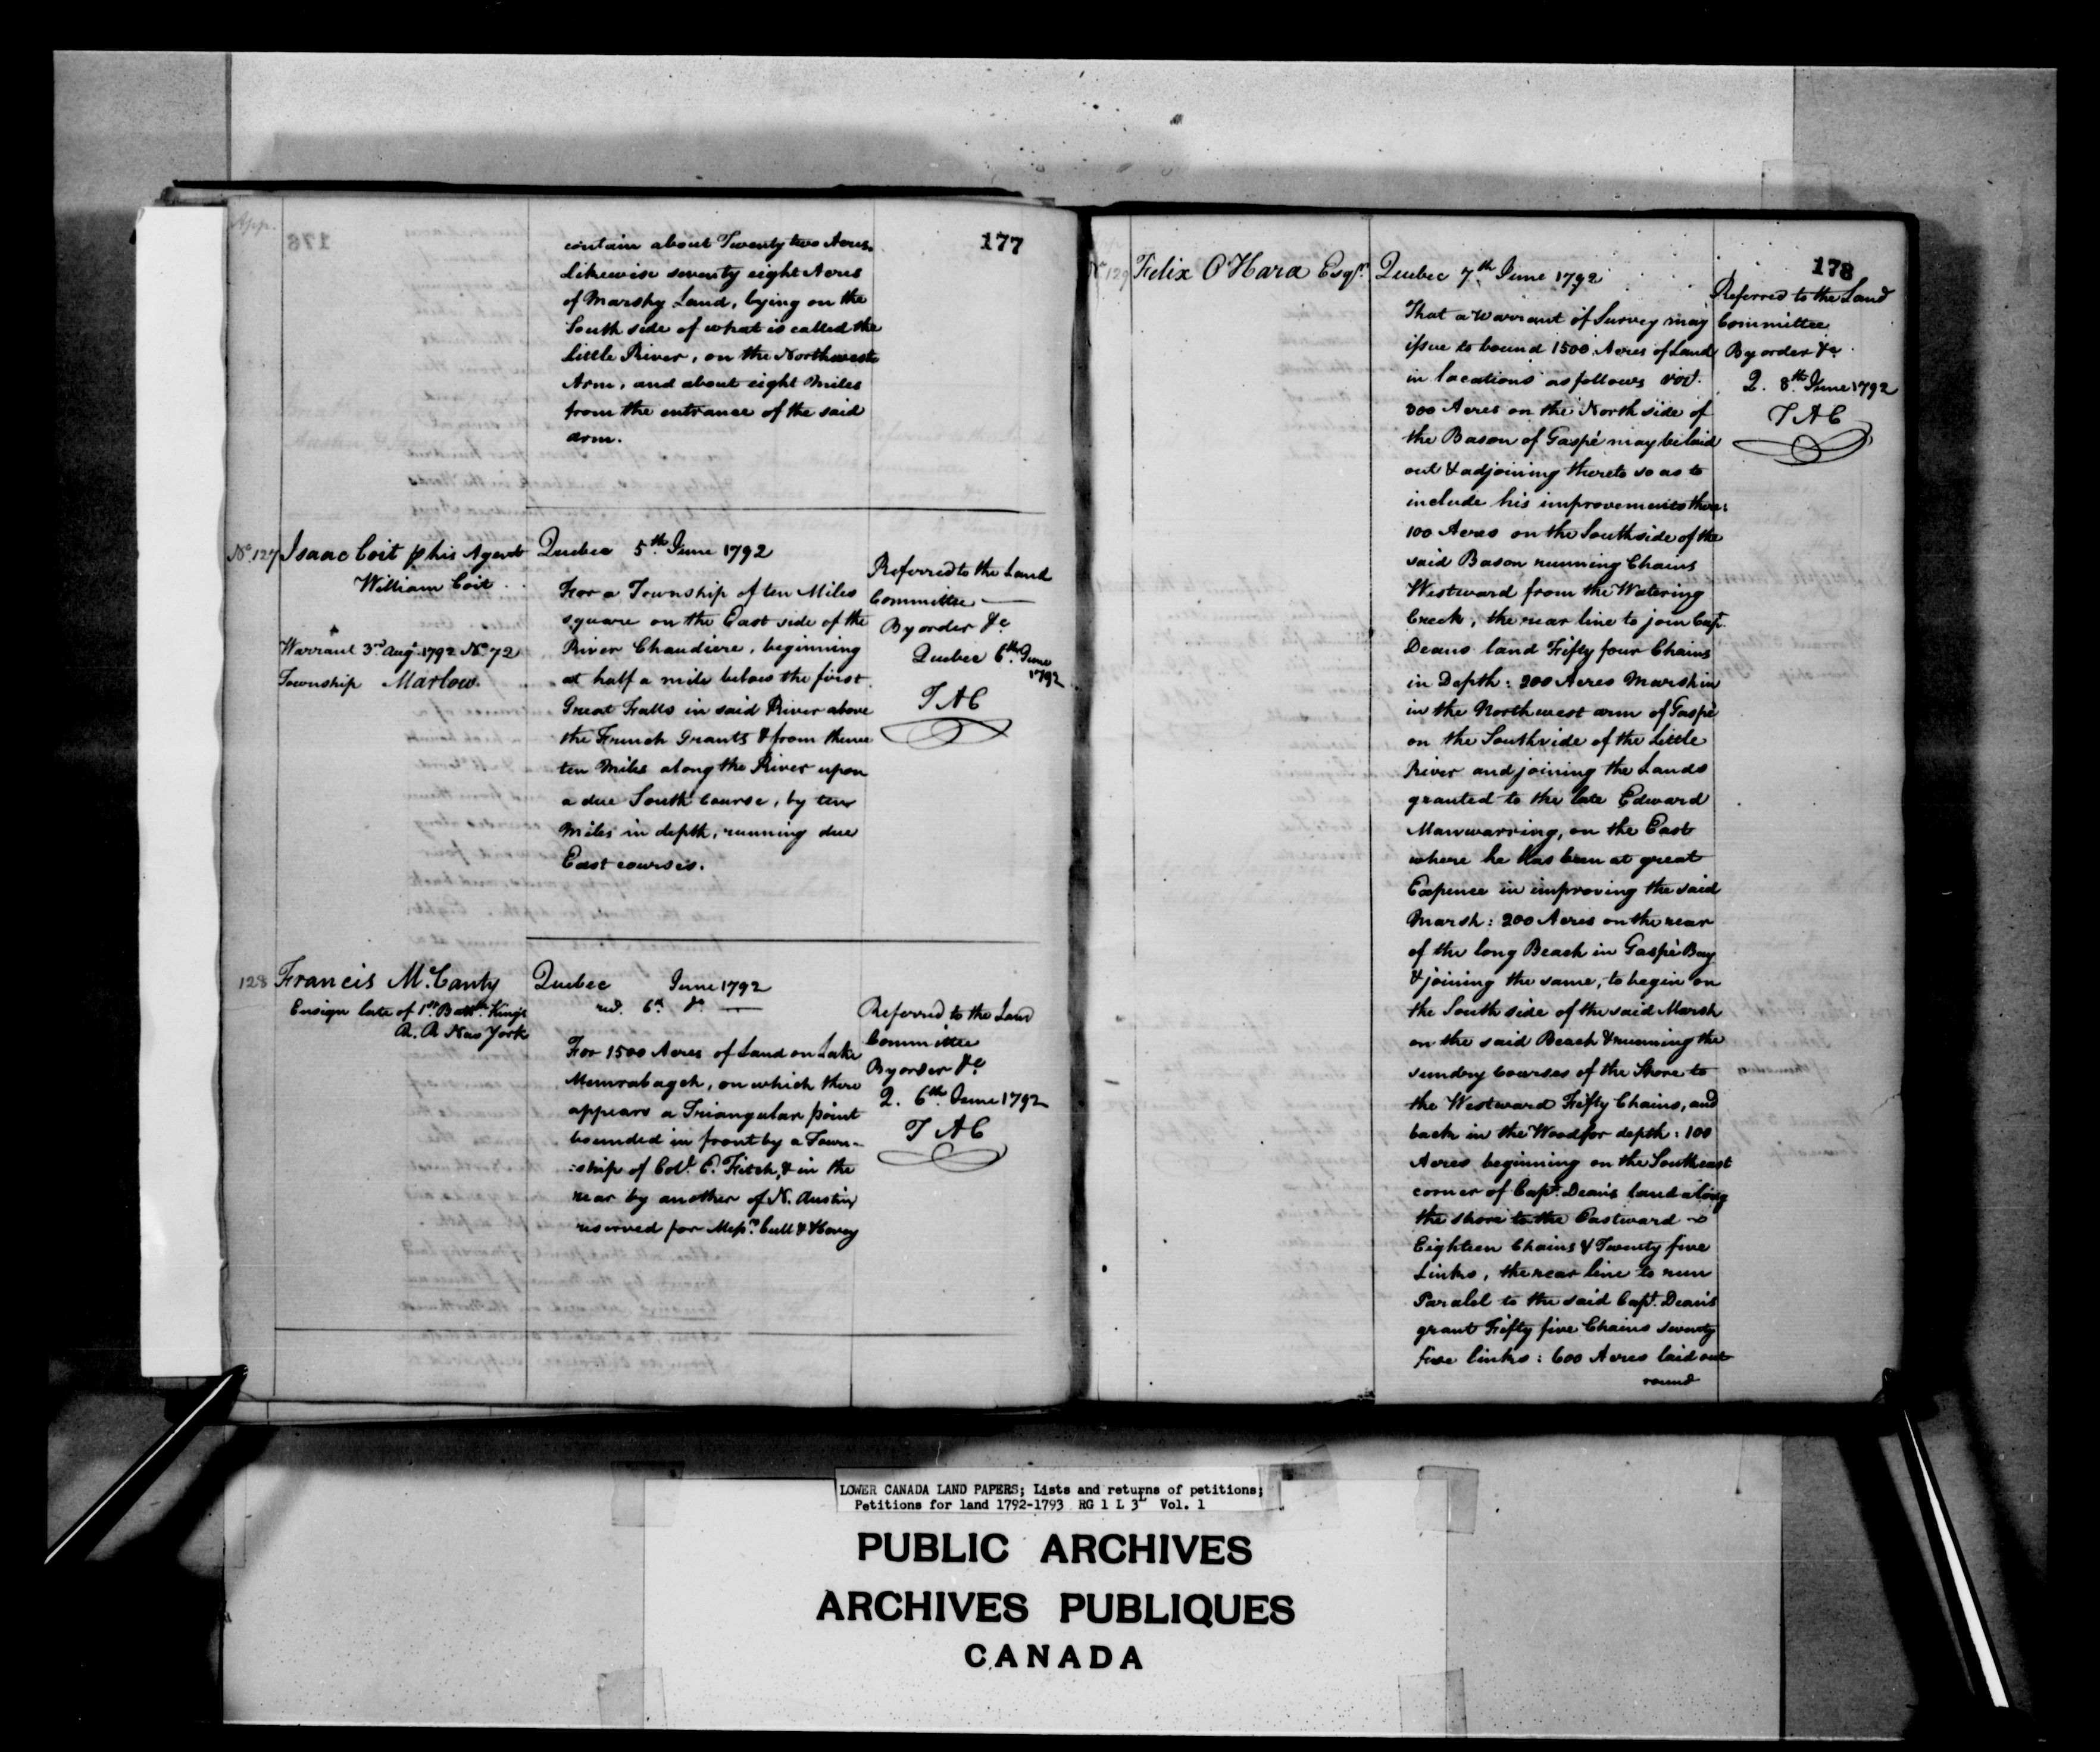 App.
177
contain about Twenty two Acres.
Likewise seventy eight Acres
of Marshy Land, lying on the
South side of what is called the
Little River, on the Northwest
Arm, and about eight Miles
from the entrance of the said
arm.
No. 127 Isaac Coit p his Agent
William Coit
Warrant 3rd Augt. 1792 No. 72
Township Marlow.
Quebec 5th June 1792
For a Township of ten Miles
square on the East side of the
River Chaudiere, beginning
at half a mile below the first
Great Falls in said River above
the French Grants & from thence
ten Miles along the River upon
a due South Course, by ten
Miles in depth, running due
East courses.
Referred to the Land
Committee
By order &c
Quebec 6th June
1792
T A C
128 Francis M. Canty
Ensign late of 1st Battn. Kings
R. R New York
Quebec June 1792
red. 6th do
For 1500 Acres of Land on Lake
Memrabagek, on which there
appears a Triangular point
bounded in front by a Town-
:ship of Coll. E. Fitch, & in the
rear by another of N. Austin
reserved for Messrs. Cull & Hovey
Referred to the Land
Committee
By order &c
Q. 6th June 1792
T A C
178
No 129 Felix O'Hara Esqr.
Quebec 7th June 1792
That a Warrant of Survey may
issue to bound 1500 Acres of Land
in locations as follows vizt.
300 Acres on the North side of
the Bason of Gaspé may be laid
out & adjoining thereto so as to
include his improvements there:
100 Acres on the South side of the
said Bason running Chains
Westward from the Watering
Creek, the rear line to join Capt.
Deans land Fifty four Chains
in Depth: 200 Acres Marsh in
in the North west arm of Gaspé
on the South side of the Little
River and joining the Lands
granted to the late Edward
Manwarring, on the East
where he has been at great
Expence in improving the said
Marsh: 200 Acres on the rear
of the long Beach in Gaspé Bay
& joining the same, to begin on
the South side of the said Marsh
on the said Beach & running the
sundry Courses of the Shore to
the Westward Fifty Chains, and
back in the Wood for depth: 100
Acres beginning on the South east
corner of Capt. Dean's land along
the shore to the Eastward
Eighteen Chains & Twenty five
Links, the rear line to run
Paralel to the said Capt. Dean's
grant Fifty five Chains seventy
five links: 600 Acres laid out
round
Referred to the Land
Committee
By order &c
Q. 8th June 1792
T A C
LOWER CANADA LAND PAPERS; Lists and returns of petitions;
Petitions for land 1792-1793 RG 1 L 3L Vol. 1
PUBLIC ARCHIVES
ARCHIVES PUBLIQUES
CANADA